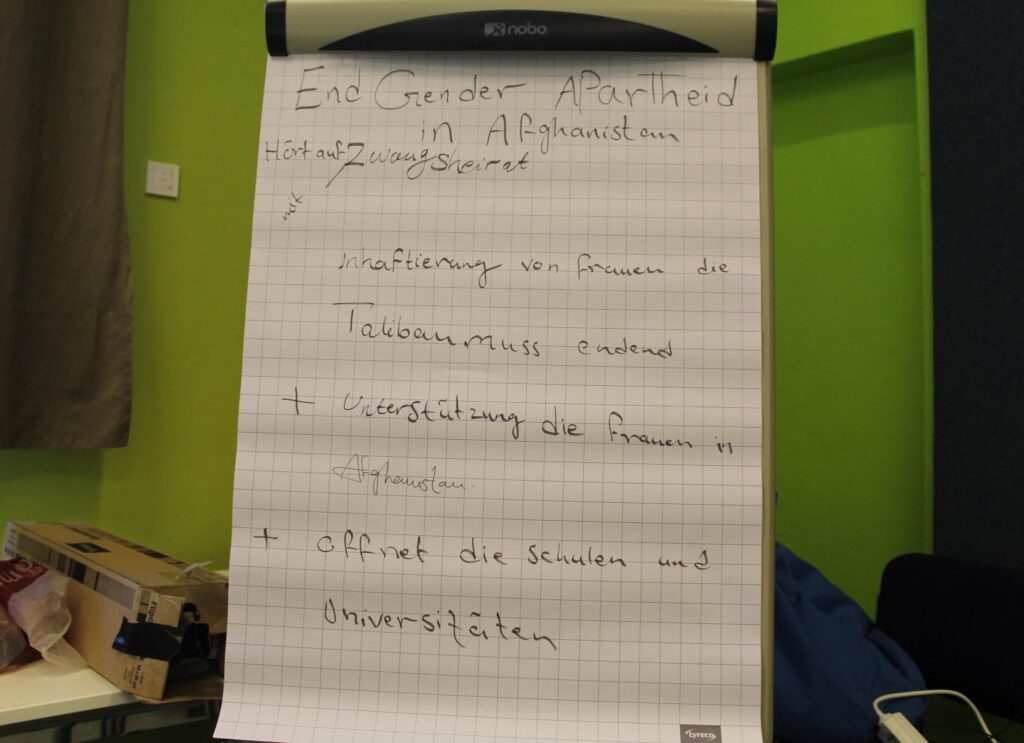 nobo
End Gender APartheid
in Afghanistan
Hört auf Zwangsheirat
inhaftierung von frauen die
Taliban muss endend
+ Unterstützung die frauen in
Afghanistan.
+ offnet die schulen und
Universitäten
Lyreco